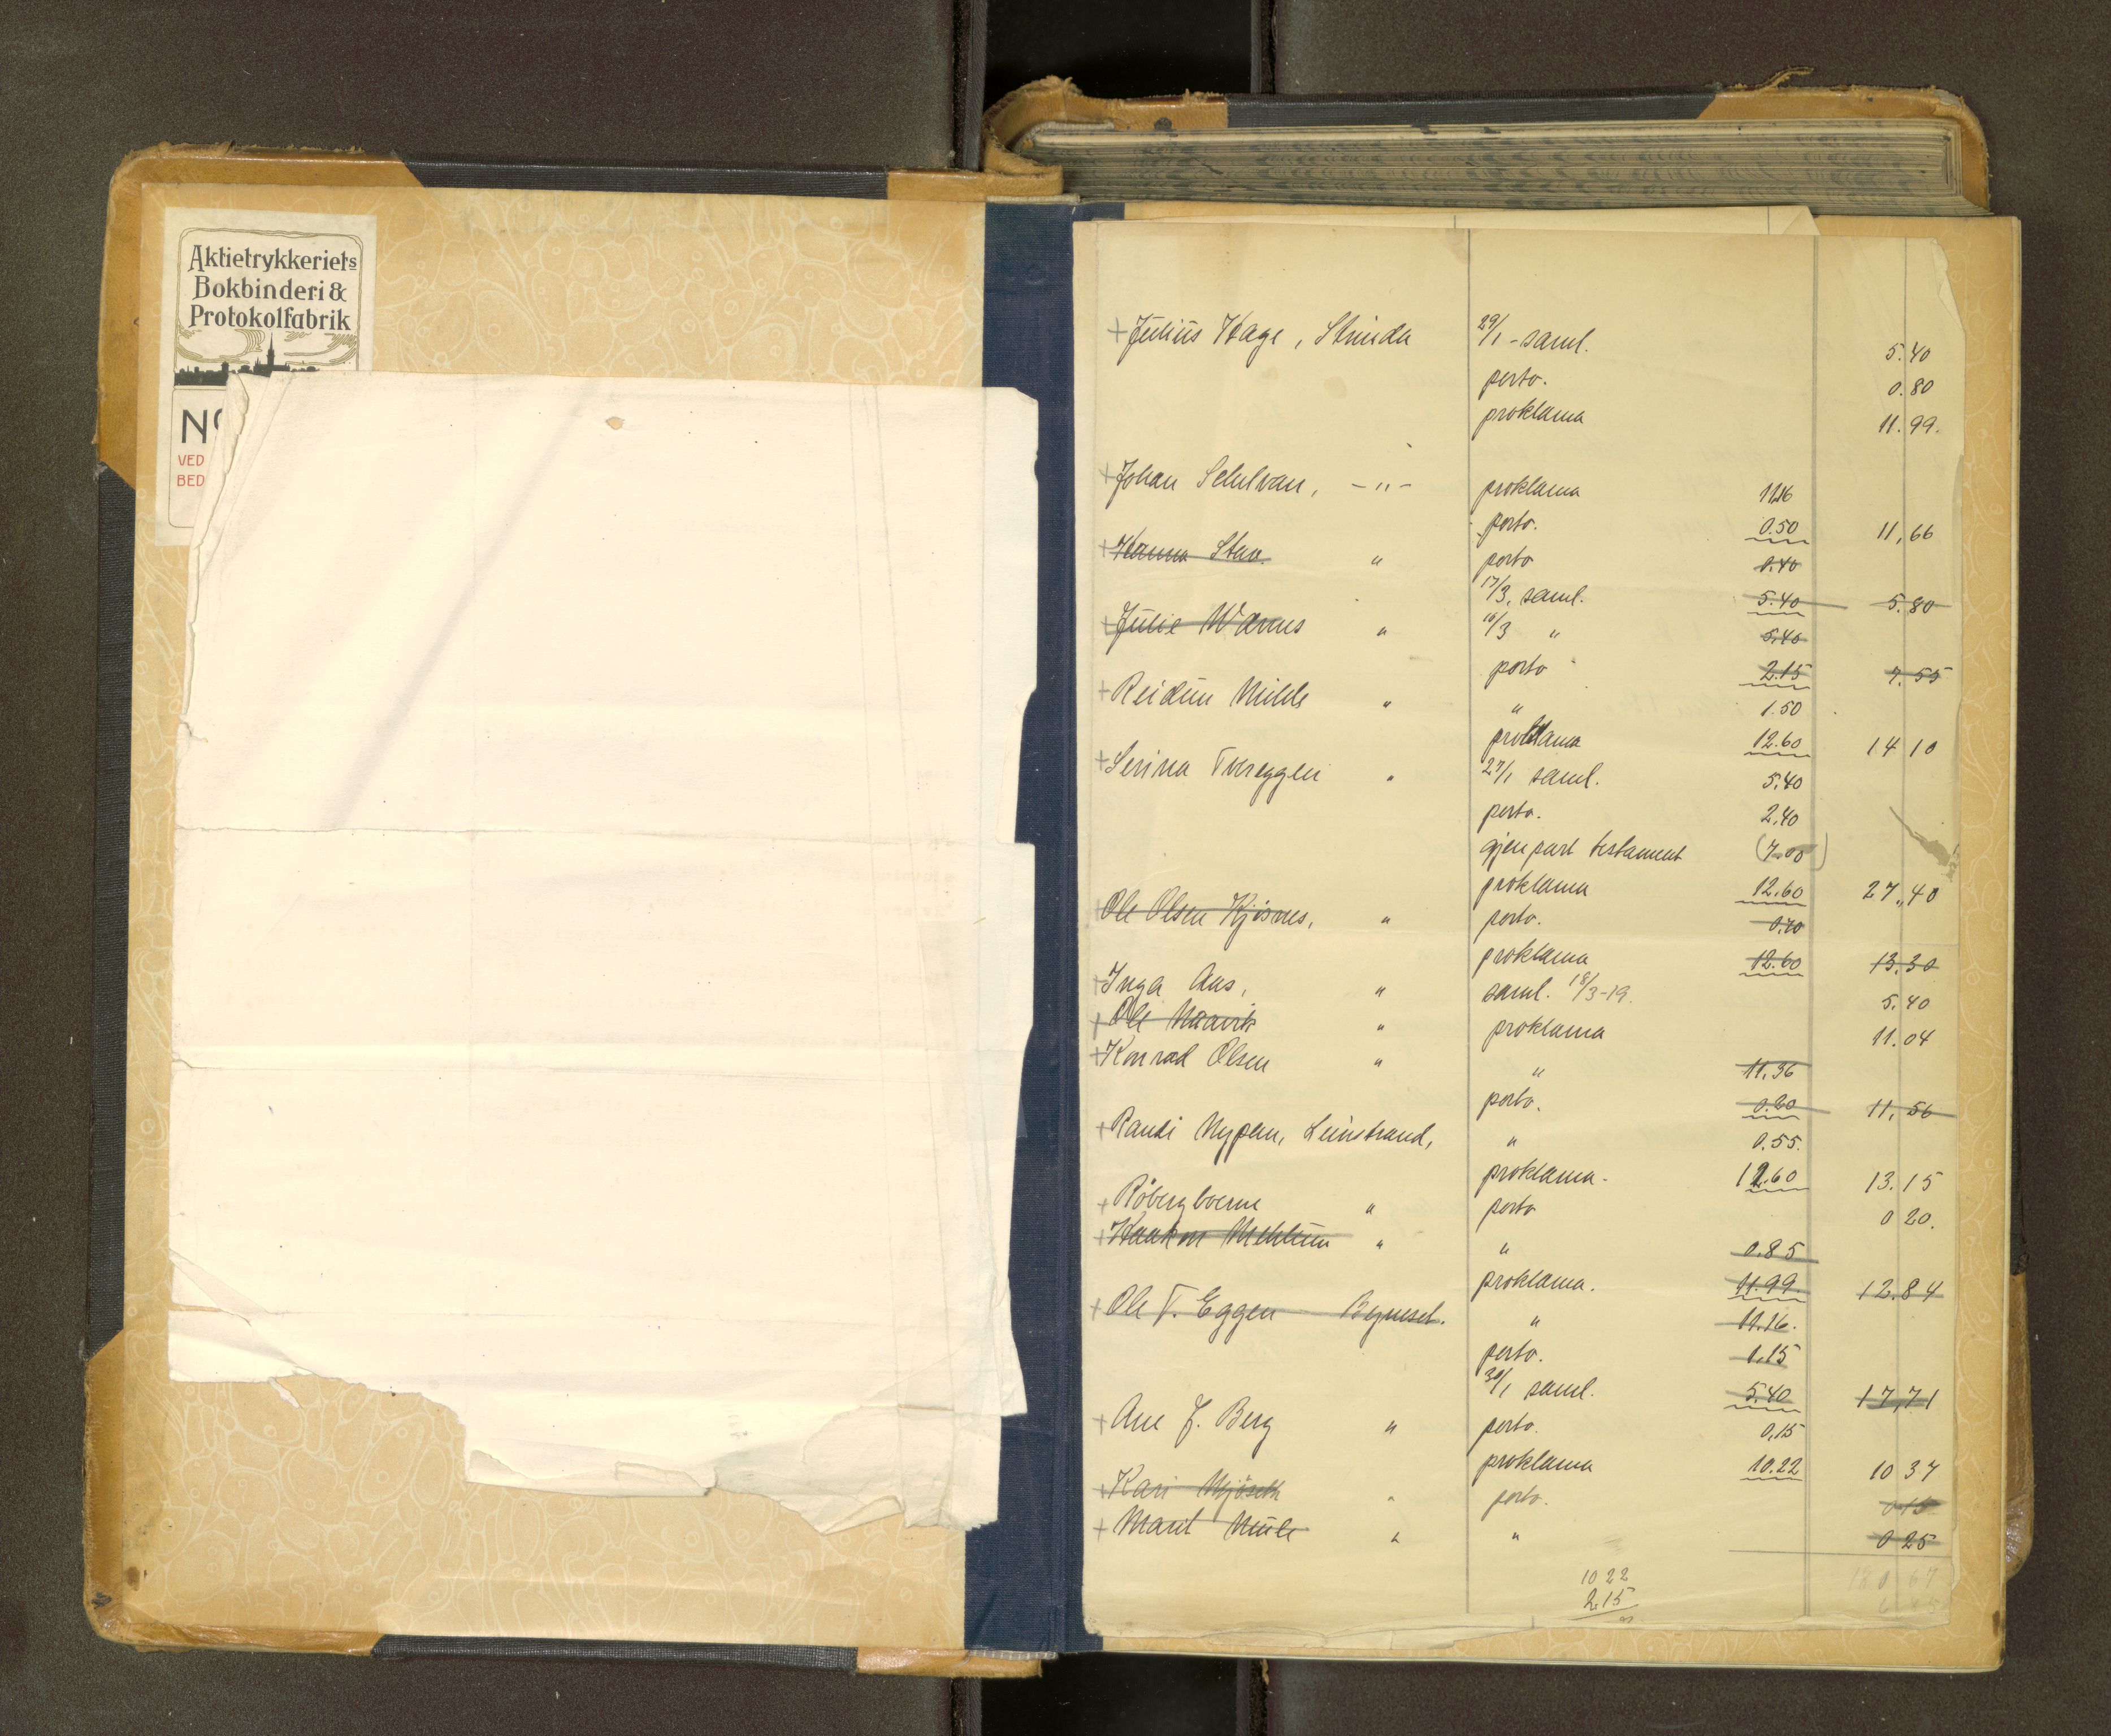 Aktietrykkeriets
Bokbinderi &
Protokolfabrik
VED
BED
+ Julius Hage, Strinda 29/1 - saml. 5.40
porto. 0.80
proklama 11.99.
+ Johan Selulvan, -"- proklama 11.16
porto. 0.50 11,66
+ Hanna Stav. " porto 0.40
17/3, saml. 5.40 5.80
+ Julie Warnes " 16/3 " 5.40
porto 2.15 7.55
+ Reidun Milde " " 1.50
proklama 12.60 14 10
+ Serina Tvereggen " 27/1 saml. 5.40
porto. 2.40
gjenpart testament (7.00)
proklama 12.60 27,40
+ Ole Olsen Kjösnes, " porto. 0.70
proklama 12.60 13.30
+ Inga Aas, " saml. 18/3-19. 5.40
+ Ole " proklama 11.04
+ Konrad Olsen " " 11.36
porto. 0.20 11,56
+ Randi Nypan, Leinstrand, " 0.55.
proklama. 12.60 13.15
+ Röbergboerne " porto 0 20.
+ Haakon Mehlum " " 0.85
proklama. 11.99. 12.84
+ Ole T. Eggen Byneset. " 11.16.
porto. 1.15
30/1 saml. 5.40 17,71
+ Ane J. Berg " porto. 0,15
proklama 10.22 10 37
+ Kari " porto. 0.15
+ Marit " " 0 25
10 22
2.15